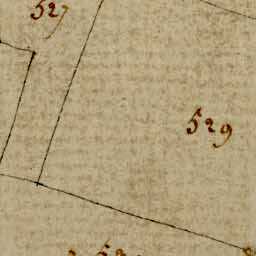 527
529